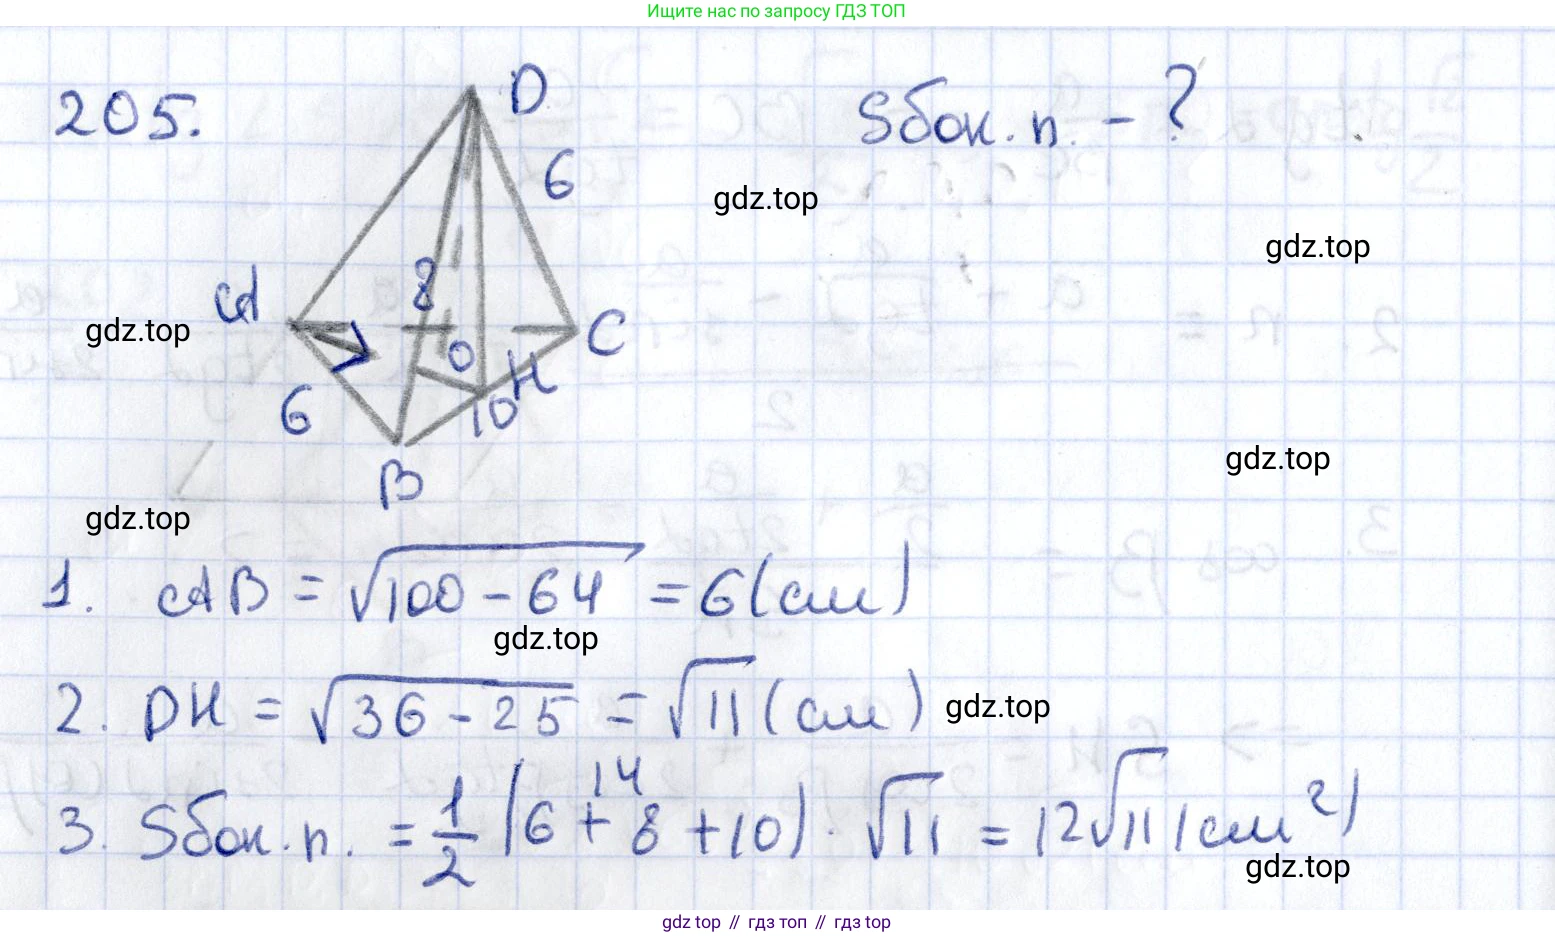 Ищите нас по запросу ГДЗ ТОП
205.
D
Sбок. п. - ?
6
gdz.top
gdz.top
A
8
gdz.top
C
O
H
6
10
B
gdz.top
gdz.top
1. AB = √100 - 64 = 6 (см)
gdz.top
2. DH = √36 - 25 = √11 (см)
gdz.top
14
3. Sбок. п. = 1/2 (6 + 8 + 10) · √11 = 12√11 (см²)
gdz.top
gdz top // гдз топ // гдз top